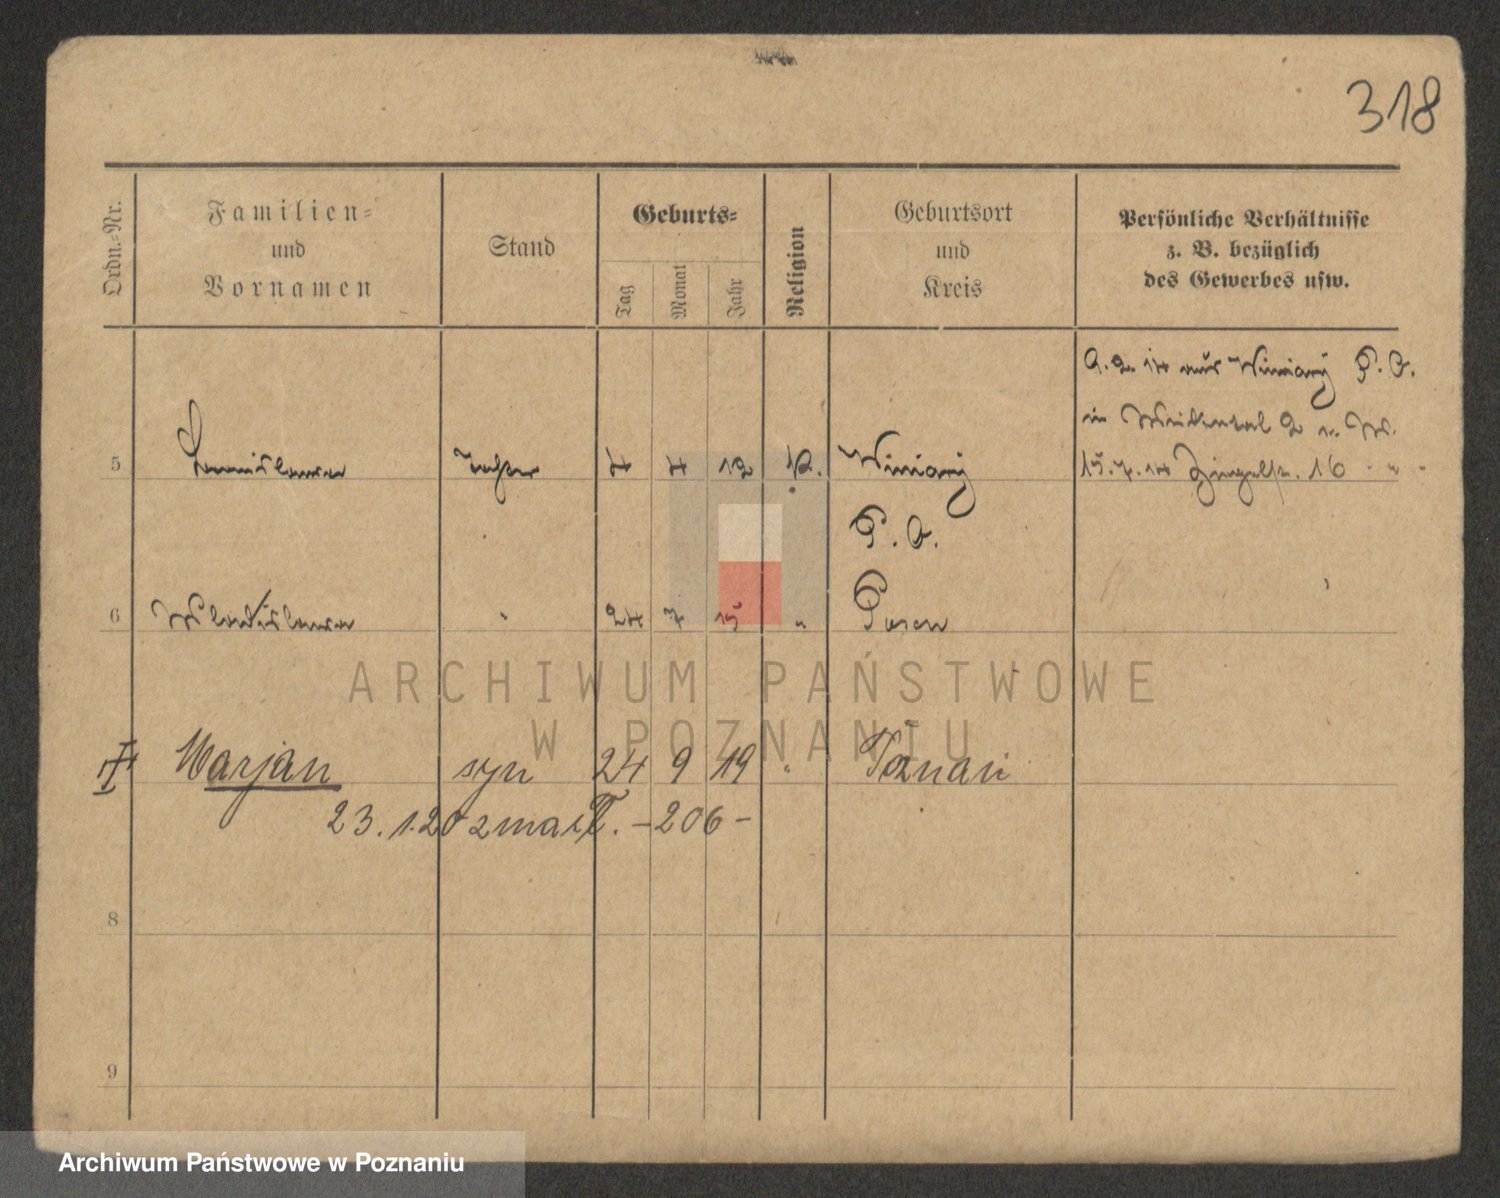 318
Ordn.-Nr.
Familien-
und
Vornamen
Stand
Geburts-
Tag
Monat
Jahr
Religion
Geburtsort
und
Kreis
Persönliche Verhältnisse
z. B. bezüglich
des Gewerbes usw.
9. 2. 14 aus Winiary P. O.
in 2 v. W.
5 Tochter 4 4 12 k. Winiary 15. 7. 14 16 " "
P. O.
6 Wladislawa " 24 7 15 " Posen
Marjan syn 24 9 19 " Poznań
23.1.20 zmarł. T. -206-
8
9
ARCHIWUM PAŃSTWOWE
W POZNANIU
Archiwum Państwowe w Poznaniu